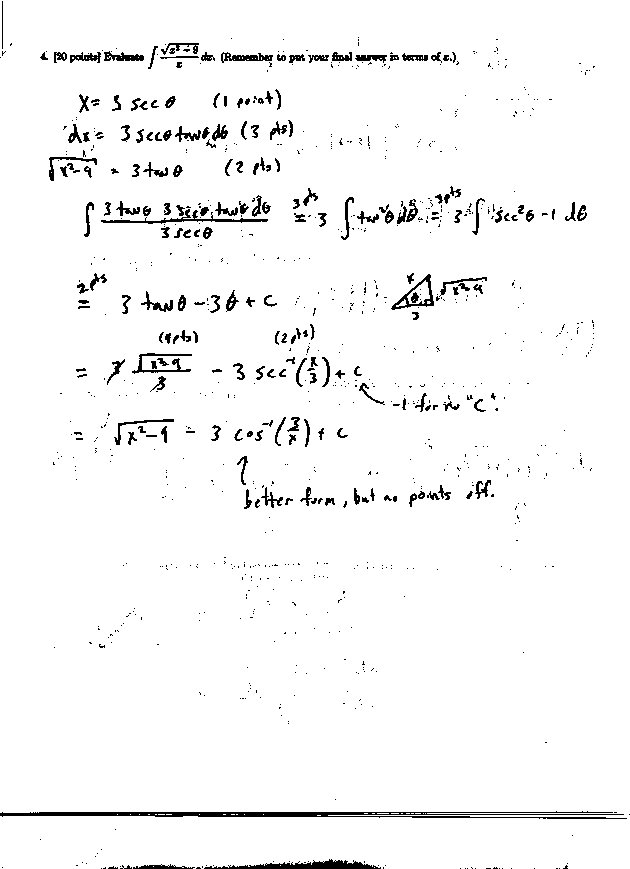 4. [20 points] Evaluate ∫ √(x² − 9)/x dx. (Remember to put your final answer in terms of x.)
x = 3 sec θ (1 point)
dx = 3 secθ tanθ dθ (3 pts)
√(x²−9) = 3 tan θ (2 pts)
∫ (3 tanθ 3 secθ tanθ dθ)/(3 sec θ) 3pts = 3 ∫ tan²θ dθ 3pts = 3 ∫ sec²θ − 1 dθ
2pts = 3 tan θ − 3θ + C
x θ √(x²−9) 3
(4pts) (2pts)
= 3 √(x²−9)/3 − 3 sec⁻¹(x/3) + C
−1 for no "C".
= √(x²−9) − 3 cos⁻¹(3/x) + C
better form, but no points off.